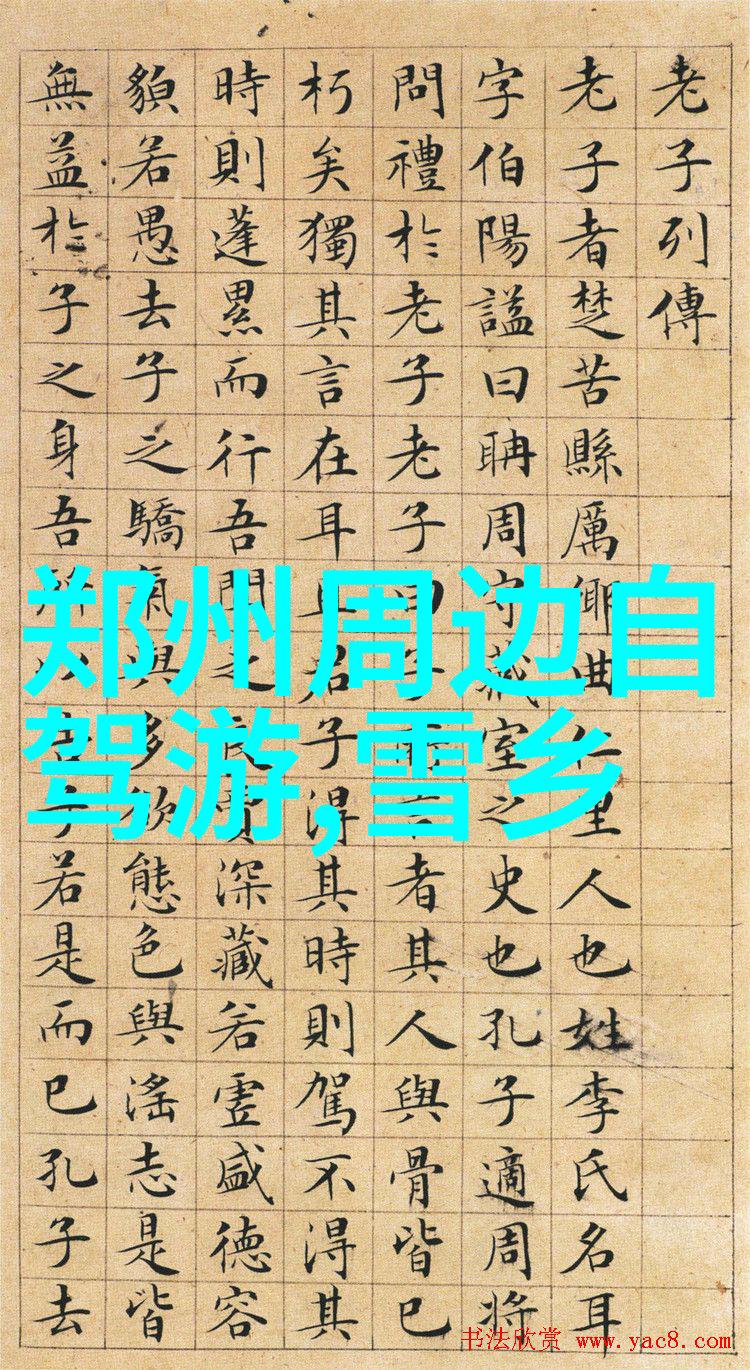 老子列傳
老子者楚苦縣厲鄉曲仁里人也姓李氏名耳
字伯陽謚曰聃周守藏室之史也孔子適周將
問禮於老子老子曰子所言者其人與骨皆已
朽矣獨其言在耳且君子得其時則駕不得其
時則蓬累而行吾聞之良賈深藏若虛盛德容
貌若愚去子之驕氣與多欲態色與淫志是皆
無益於子之身吾所以告子若是而已孔子去
郑州周边自
驾游,雪乡
书法欣赏 www.yac8.com